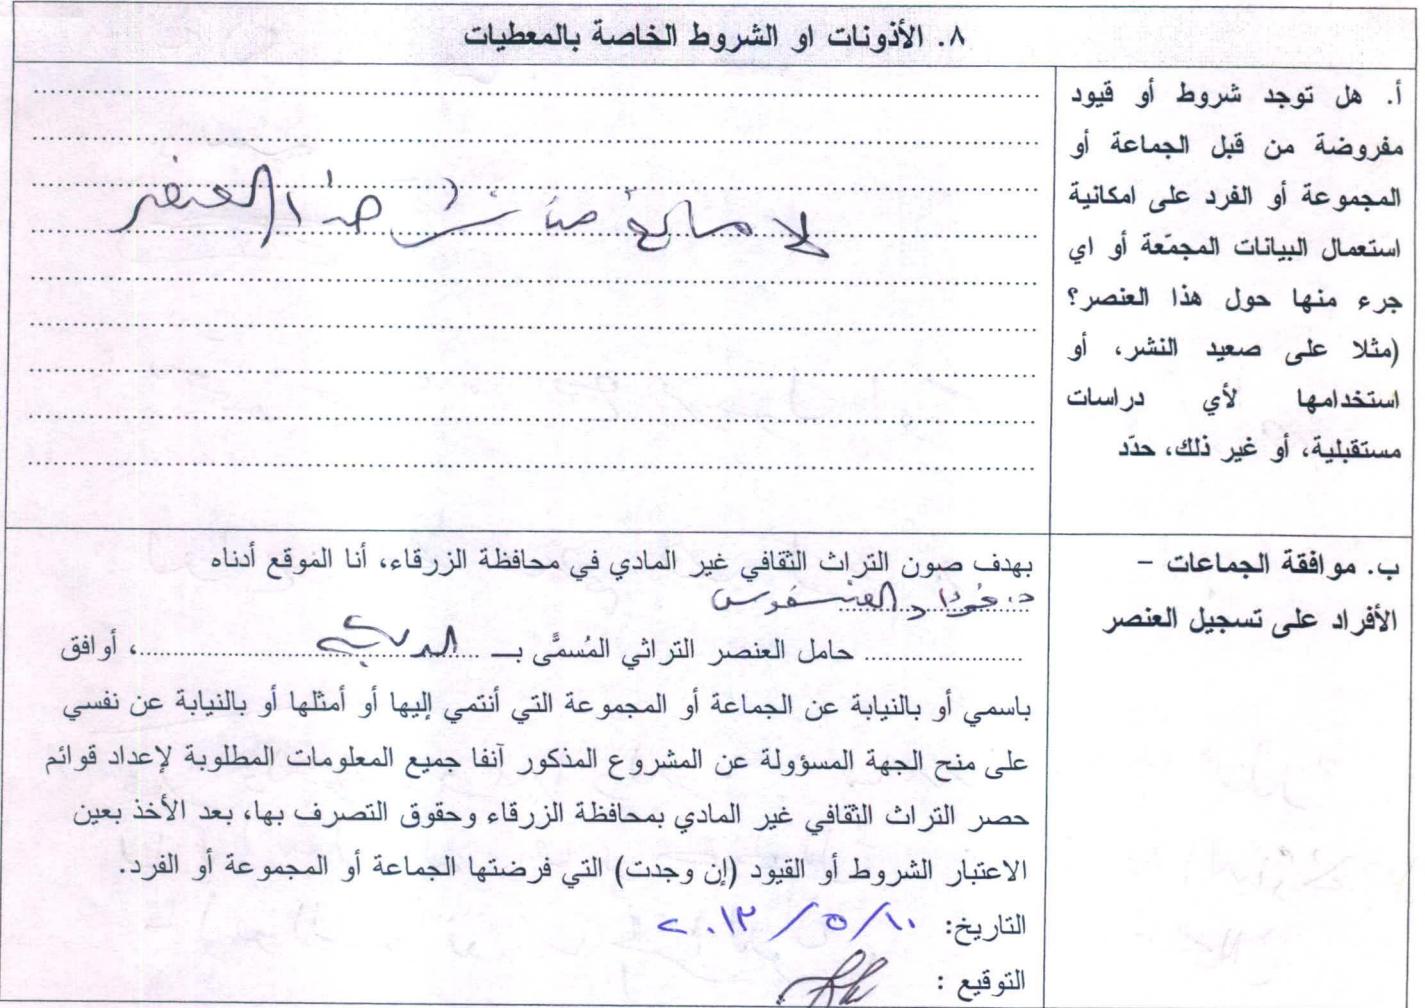 ٨. الأذونات او الشروط الخاصة بالمعطيات
أ. هل توجد شروط أو قيود
مفروضة من قبل الجماعة أو
المجموعة أو الفرد على امكانية
استعمال البيانات المجمّعة أو اي
جرء منها حول هذا العنصر؟
(مثلا على صعيد النشر، أو
استخدامها لأي دراسات
مستقبلية، أو غير ذلك، حدّد
لا مانع من نشر هذا العنصر
ب. موافقة الجماعات –
الأفراد على تسجيل العنصر
بهدف صون التراث الثقافي غير المادي في محافظة الزرقاء، أنا الموقع أدناه
د.
حامل العنصر التراثي المُسمَّى بـ ، أوافق
باسمي أو بالنيابة عن الجماعة أو المجموعة التي أنتمي إليها أو أمثلها أو بالنيابة عن نفسي
على منح الجهة المسؤولة عن المشروع المذكور آنفا جميع المعلومات المطلوبة لإعداد قوائم
حصر التراث الثقافي غير المادي بمحافظة الزرقاء وحقوق التصرف بها، بعد الأخذ بعين
الاعتبار الشروط أو القيود (إن وجدت) التي فرضتها الجماعة أو المجموعة أو الفرد.
التاريخ: ١٠/٥/٢٠١٣
التوقيع :